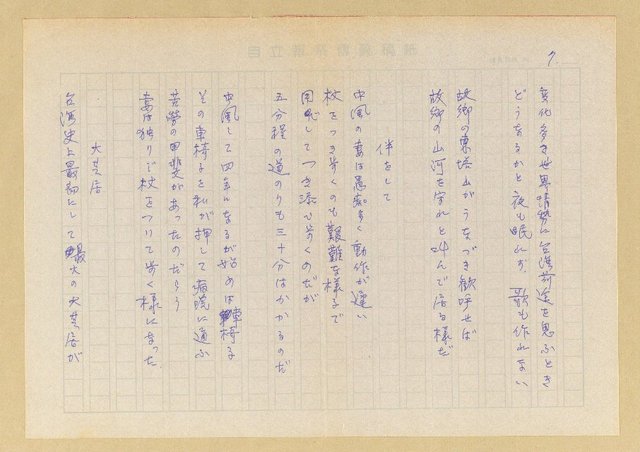 7
変化多き世界情勢に台湾前途を思ふとき
どうなるかと夜も眠れず、歌も作れない
故郷の東塔山がうなづき歓呼せば
故郷の山河を守れと叫んで居る様だ
伴をして
中風の妻は愚痴多く動作が遅い
杖をつき歩くのも艱難な様子で
用心してつき添ひ歩くのだが
五分程の道のりも三十分はかかるのだ
中風して四年になるが始めは車椅子
その車椅子を私が押して病院に通ふ
苦労の甲斐があったのだらう
妻は独りで杖をついて歩く様になった
大芝居
台湾史上最初にして最大の大芝居が